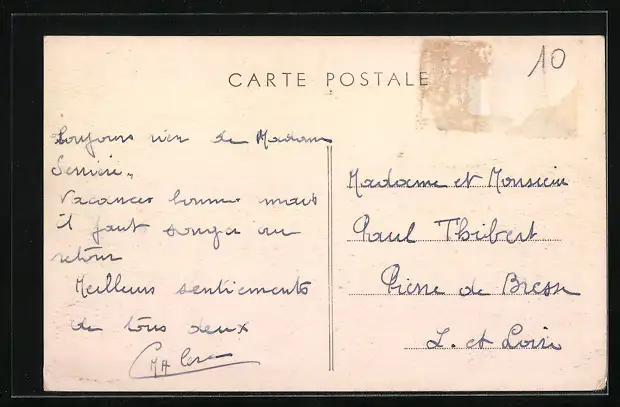 CARTE POSTALE
10
Toujours rien de Madame
Vacances bonnes mais
il faut songer au
retour
Meilleurs sentiments
de tous deux
Madame et Monsieur
Paul Thibert
Pierre de Bresse
S. et Loire